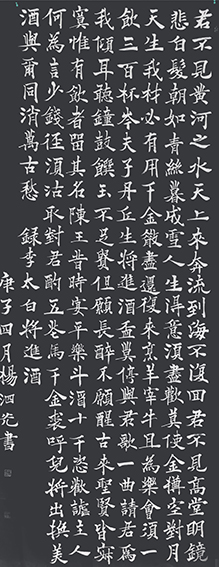 君不見黄河之水天上來奔流到海不復回君不見高堂明鏡
悲白髮朝如青絲暮成雪人生得意須盡歡莫使金樽空對月
天生我材必有用千金散盡還復來烹羊宰牛且為樂會須一
飲三百杯岑夫子丹丘生將進酒盃莫停與君歌一曲請君為
我傾耳聽鐘鼓饌玉不足貴但願長醉不願醒古來聖賢皆寂
寞惟有飲者留其名陳王昔時宴平樂斗酒十千恣歡謔主人
何為言少錢徑須沽取對君酌五花馬千金裘呼兒將出換美
酒與爾同消萬古愁 錄李太白將進酒
庚子四月楊泗 書